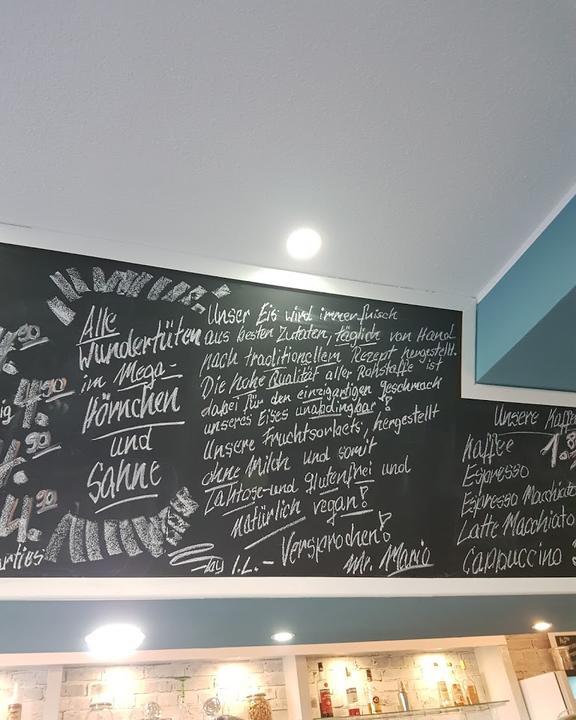 4.90
4.90
4.90
4.90
Alle
Wundertüten
im Mega-
Hörnchen
und
Sahne
Unser Eis wird immer frisch
aus besten Zutaten, täglich von Hand
nach traditionellem Rezept hergestellt.
Die hohe Qualität aller Rohstoffe ist
dabei für den einzigartigen Geschmack
unseres Eises unabdingbar!
Unsere Fruchtsorbets, hergestellt
ohne Milch und somit
Laktose- und glutenfrei und
natürlich vegan!
I.L. - Versprochen!
Mr. Mario
Unsere Kaffee
Kaffee
Espresso
Espresso Macchiato
Latte Macchiato
Cappuccino